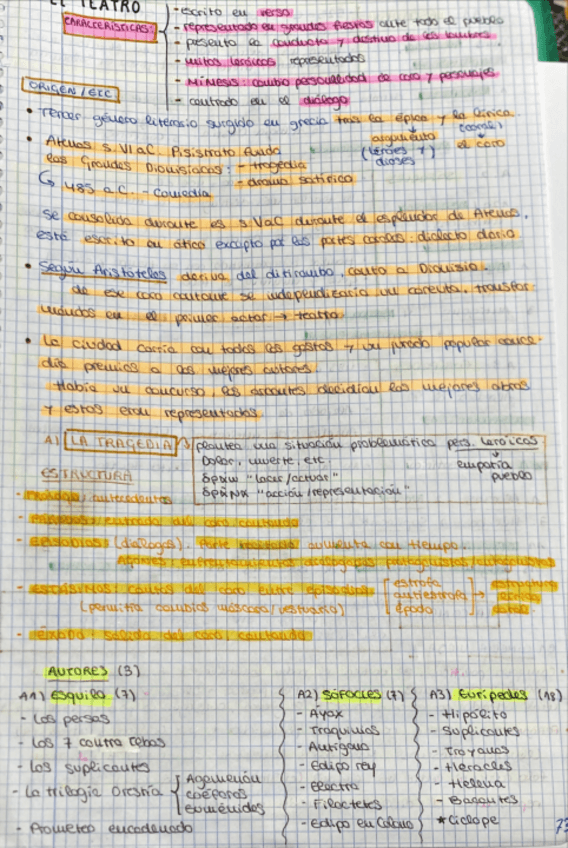 EL TEATRO
CARACTERÍSTICAS:
- escrito en verso
- representado en grandes fiestas ante todo el pueblo
- presenta la conducta y destino de los hombres
- mitos heroicos representados
- MÍMESIS: cambio personalidad de coro y personajes
- centrado en el diálogo
ORIGEN / ETC
• Tercer género literario surgido en grecia tras la épica y la lírica.
argumento (coral)
(héroes y dioses) el coro
• Atenas s. VI a.C. Pisístrato funda
las Grandes Dionisiacas: - tragedia
- drama satírico
↳ 485 a.C. - Comedia
Se consolida durante el s V a.C durante el esplendor de Atenas.
está escrito en ático excepto por las partes corales: dialecto dorio
• Según Aristóteles deriva del ditirambo, canto a Dionisio.
de ese coro cantante se independizaría un coreuta, transfor
mándose en el primer actor → teatro
• La ciudad corría con todos los gastos y un jurado popular conce-
día premios a los mejores autores
Había un concurso, los arcontes decidían las mejores obras
y estas eran representadas.
A) LA TRAGEDIA plantea una situación problemática pers. heroicos
Dolor, muerte, etc empatía pueblo
δράω "hacer/actuar"
δρᾶμα "acción/representación"
ESTRUCTURA
- Prólogo: antecedentes
- Párodos: entrada del coro cantando
- episodios: (diálogos). Parte hablada aumenta con tiempo.
Agones: enfrentamientos dialogados protagonistas/antagonistas
- estásimos: cantos del coro entre episodios [estrofa
(permitía cambios máscara/vestuario) antiestrofa
épodo] → estructura
- éxodo: salida del coro cantando
AUTORES (3)
A1) Esquilo (7)
- Los persas
- Los 7 contra tebas
- Las suplicantes
- La trilogía Orestía { Agamenón
coéforas
Euménides
- Prometeo encadenado
A2) SÓFOCLES (7)
- Áyax
- Traquinias
- Antígona
- Edipo rey
- Electra
- Filoctetes
- Edipo en Colono
A3) Eurípedes (18)
- Hipólito
- Suplicantes
- Troyanas
- Heracles
- Helena
- Bacantes
★ Cíclope
73